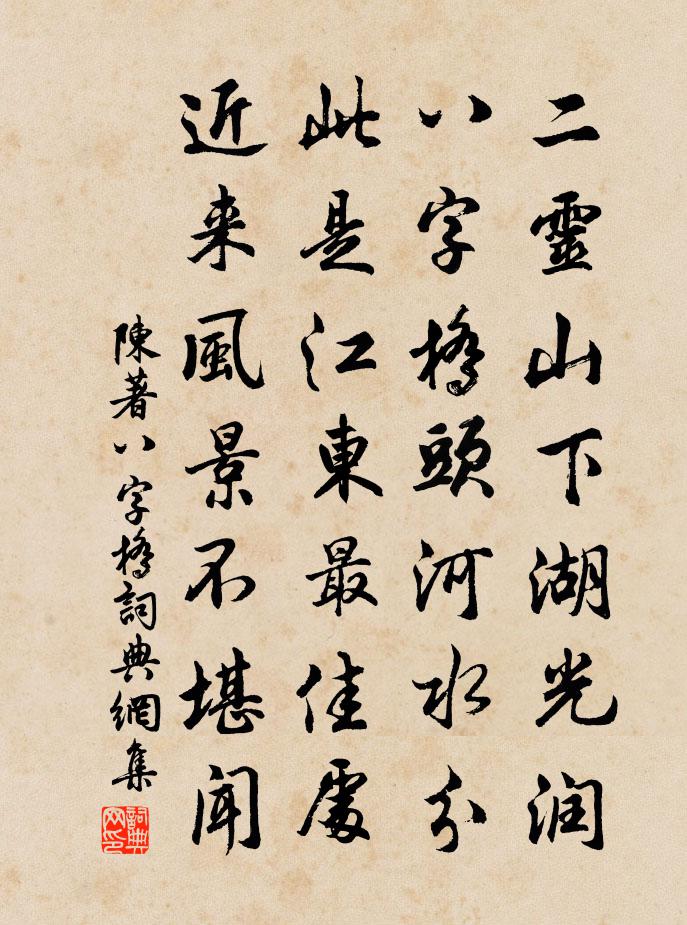 二靈山下湖光润
八字橋頭河水分
此是江東最佳處
近来風景不堪聞
陳著八字橋詞典網集
詞典网印